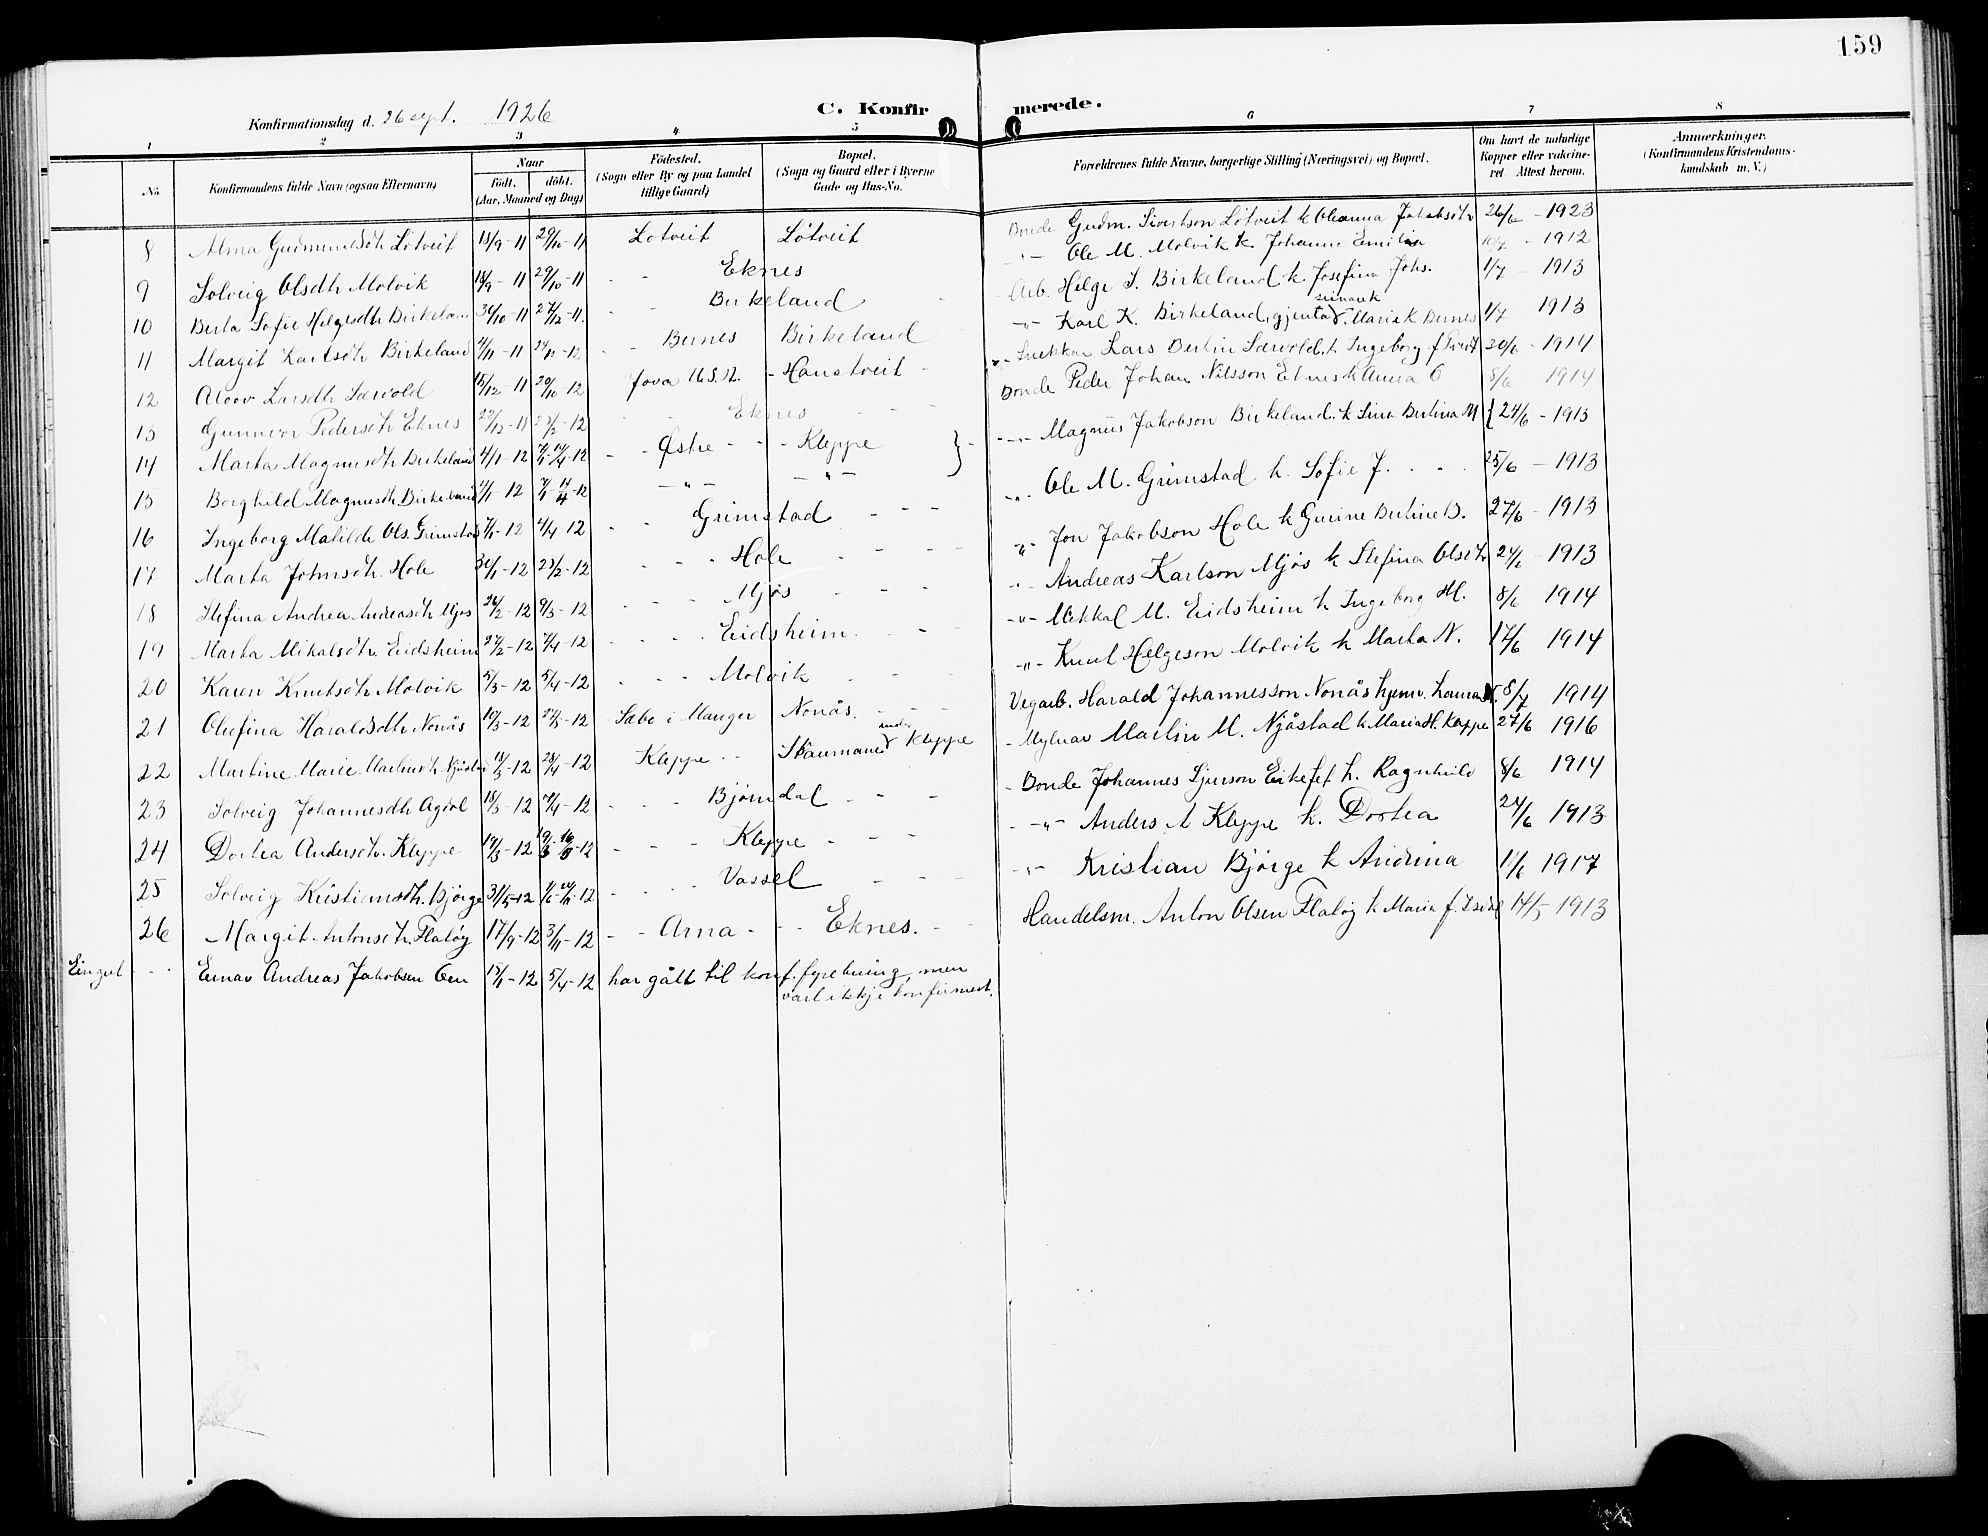 159
Konfirmationsdag d. 26 sept. 1926 C. Konfirmerede.
1 2 3 4 5 6 7 8
No. Konfirmandens fulde Navn (ogsaa Efternavn) Naar födt. döbt. (Aar, Maaned og Dag) Födested. (Sogn eller By og paa Landet tillige Gaard) Bopæl. (Sogn og Gaard eller i Byerne Gade og Hus-No. Forældrenes fulde Navne, borgerlige Stilling (Næringsvei) og Bopæl. Om havt de naturlige Kopper eller vaccineret Attest herom. Anmærkninger. (Konfirmandens Kristendomskundskab m. V.)
8 Alma Gudmundsdtr Lötveit 13/9-11 29/10-11 Lötveit Lötveit Bonde Gudm. Sivertson Lötveit k Oleanna Jakobsdtr 26/6 - 1923
9 Solveig Olsdtr Molvik 18/9-11 29/10-11 Eknes -"- Ole M. Molvik k. Johanne Emilia 1912
10 Berta Sofie Helgesdtr Birkeland 30/10-11 27/12-11. Birkeland Arb. Helge S. Birkeland k. Josefina Johs. 1/7 - 1913
11 Margit Karlsdtr Birkeland 4/11-11 24/11-12 Bernes Birkeland -"- Karl K. Birkeland, gjenta Maria K Bernes 1/7 1913
12 Aloov Larsdtr Særvold 15/12-11 20/10-12 Hanstveit Snekkar Lars Bertin Særvold k Ingeborg 20/6 - 1914
13 Gunnvor Pedersdtr Eknes 22/12-11 23/2-12 Eknes Bonde Peder Johan Nilsson Eknes k Anna O 8/6 1914
14 Marta Magnusdtr Birkeland 4/1-12 14/4-12 Østre - - Kleppe } -"- Magnus Jakobson Birkeland k Sina Bertina M { 24/6 - 1913
15 Borghild Magnusdtr Birkeland 4/1-12 14/4-12 -"- -"-
16 Ingeborg Matilde Ols. Grimstad 7/1-12 4/4-12 Grimstad -"- Ole M. Grimstad k. Sofie J. 25/6 - 1913
17 Marta Johnsdtr. Hole 30/1-12 25/2-12 Hole -"- Jon Jakobson Hole k Gurine Bertine D. 27/6 - 1913
18 Stefina Andrea Andreasdtr Mjøs 26/2-12 9/3-12 Mjøs -"- Andreas Karlson Mjøs k Stefina Olsdtr 24/6 - 1913
19 Marta Mikalsdtr. Eidsheim 27/2-12 7/4-12 Eidsheim. -"- Mikkal M. Eidsheim k Ingeborg M. 8/6 1914
20 Karen Knutsdtr Molvik 5/3-12 5/4-12 Molvik -"- Knut Helgeson Molvik k Marta N. 17/6 1914
21 Olufina Haraldsdtr Nonås 10/3-12 27/5-12 Sæbø i Manger Nonås. Vegarb. Harald Johannesson Nonås hjemv. Laura M. 8/7 1914
22 Martine Marie Martinsdtr Njåstad 13/3-12 28/4-12 Kleppe Skarmane under Kleppe Mylnar Martin M. Njåstad k. Maria H. Kleppe 27/6 1916
23 Solveig Johannesdtr Agdal 18/3-12 7/4-12 Bjørndal Bonde Johannes Sjurson Eikefet k. Ragnhild 8/6 1914
24 Dortea Andersdtr. Kleppe 19/3-12 Kleppe -"- Anders A Kleppe k. Dortea 24/6 1913
25 Solveig Kristiansdtr. Bjørge 31/5-12 Vassel -"- Kristian Bjørge k Andrina 11/6 1917
26 Margit Antonsdtr. Flatøy 17/9-12 3/11-12 - - Arna - - Eknes. Handelsm. Anton Olsen Flatøy k Maria f. Isdal 14/5 1913
Eingut - - Einar Andreas Jakobsen Oen 15/1-12 5/4-12 har gått til konf. fyrebuing, men
vart ikkje konfirmert.